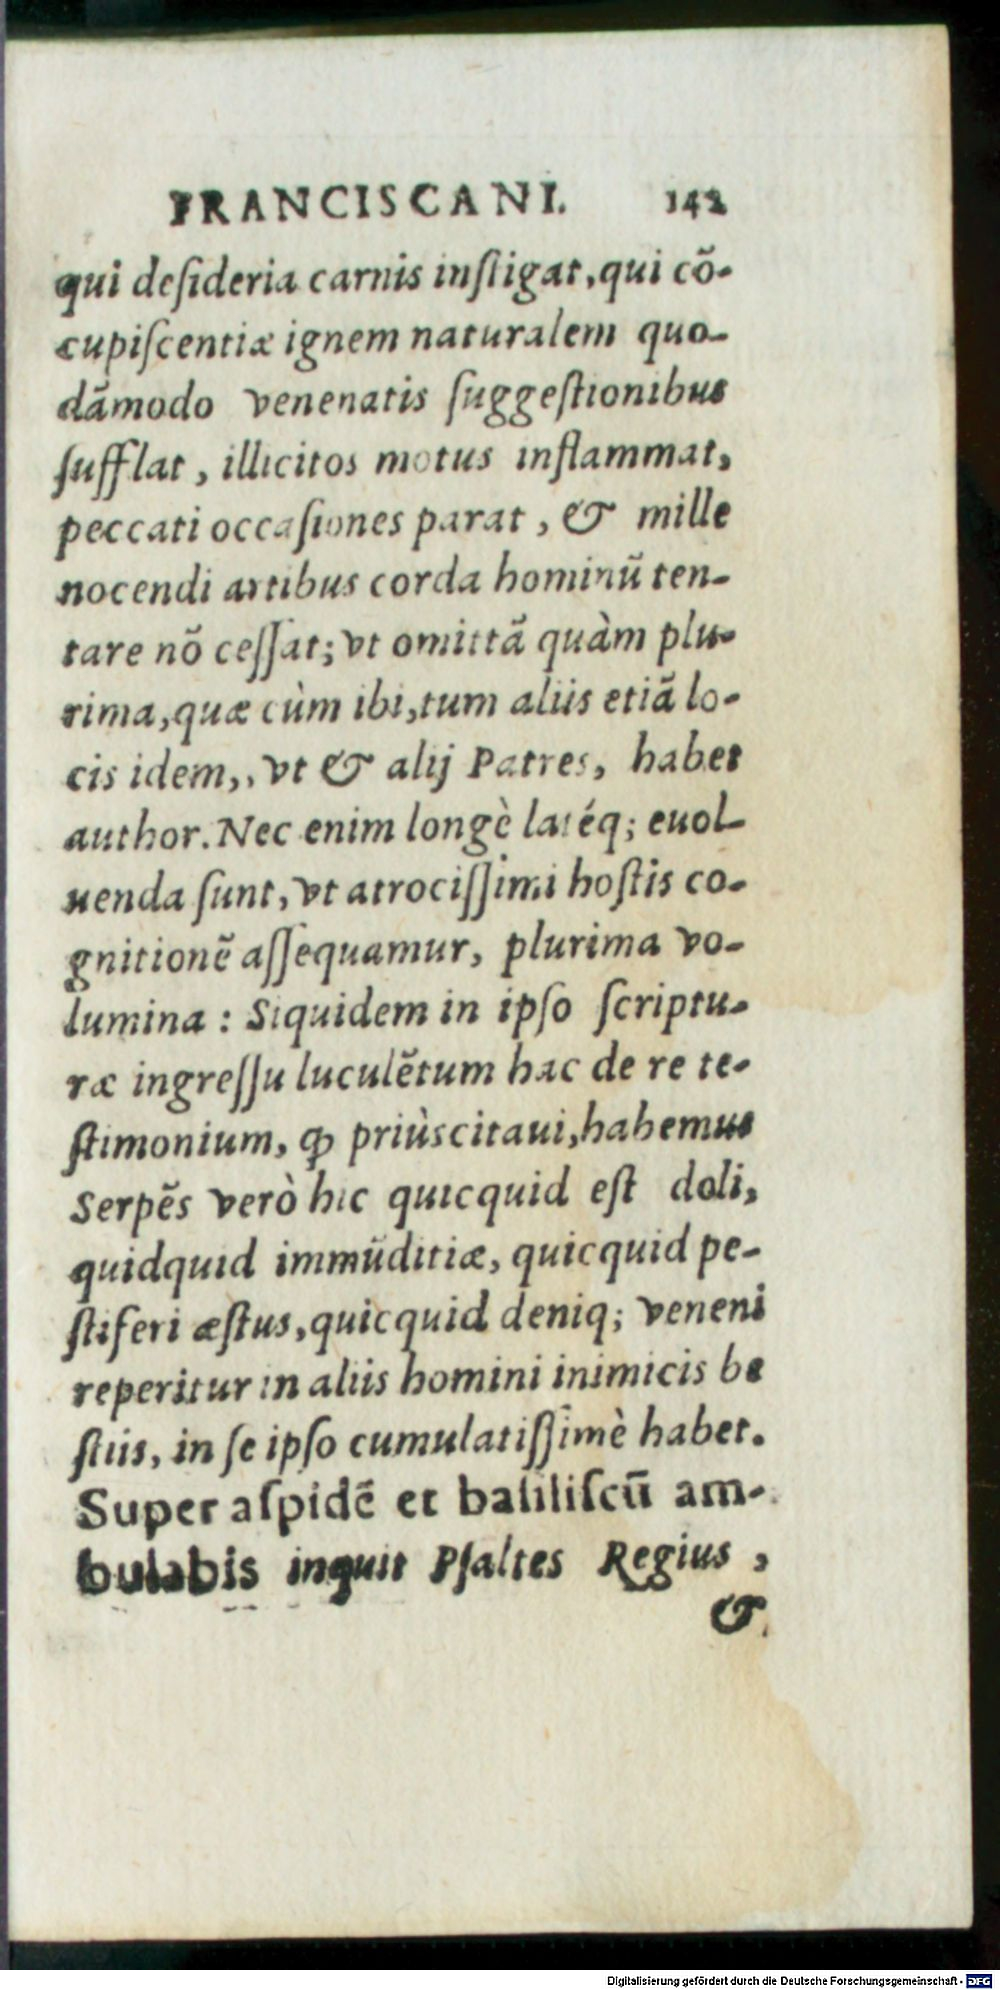 FRANCISCANI. 142
qui deſideria carnis inſtigat, qui cõ-
cupiſcentiæ ignem naturalem quo-
dãmodo venenatis ſuggeſtionibus
ſufflat, illicitos motus inflammat,
peccati occaſiones parat, & mille
nocendi artibus corda hominũ ten-
tare nõ ceſſat; vt omittã quàm plu-
rima, quæ cùm ibi, tum aliis etiã lo-
cis idem,, vt & alij Patres, habet
author. Nec enim longè latéq; euol-
uenda ſunt, vt atrociſſimi hoſtis co-
gnitionẽ aſſequamur, plurima vo-
lumina : Siquidem in ipſo ſcriptu-
ræ ingreſſu luculẽtum hac de re te-
ſtimonium, ꝙ priùs citaui, habemus
Serpẽs verò hic quicquid eſt doli,
quidquid immũditiæ, quicquid pe-
ſtiferi æſtus, quicquid deniq; veneni
reperitur in aliis homini inimicis be
ſtiis, in ſe ipſo cumulatiſſimè habet.
Super aſpidẽ et baſiliſcũ am-
bulabis inquit Pſaltes Regius ,
&
Digitalisierung gefördert durch die Deutsche Forschungsgemeinschaft - DFG